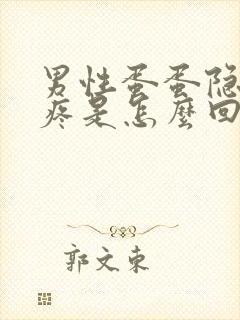 男性蛋蛋隐
疼是怎麼回
郭文東